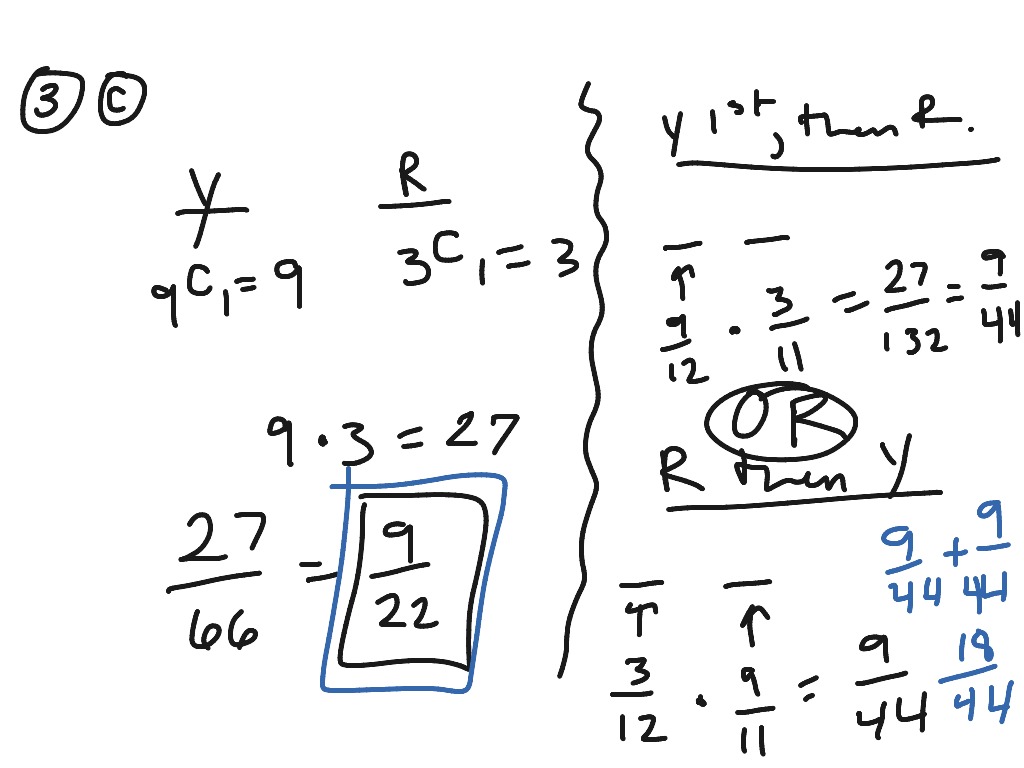 3 C
Y R
9C1 = 9 3C1 = 3
9 · 3 = 27
27/66 = 9/22
Y 1st, then R.
9/12 · 3/11 = 27/132 = 9/44
OR
R then Y
9/44 + 9/44
3/12 · 9/11 = 9/44 18/44